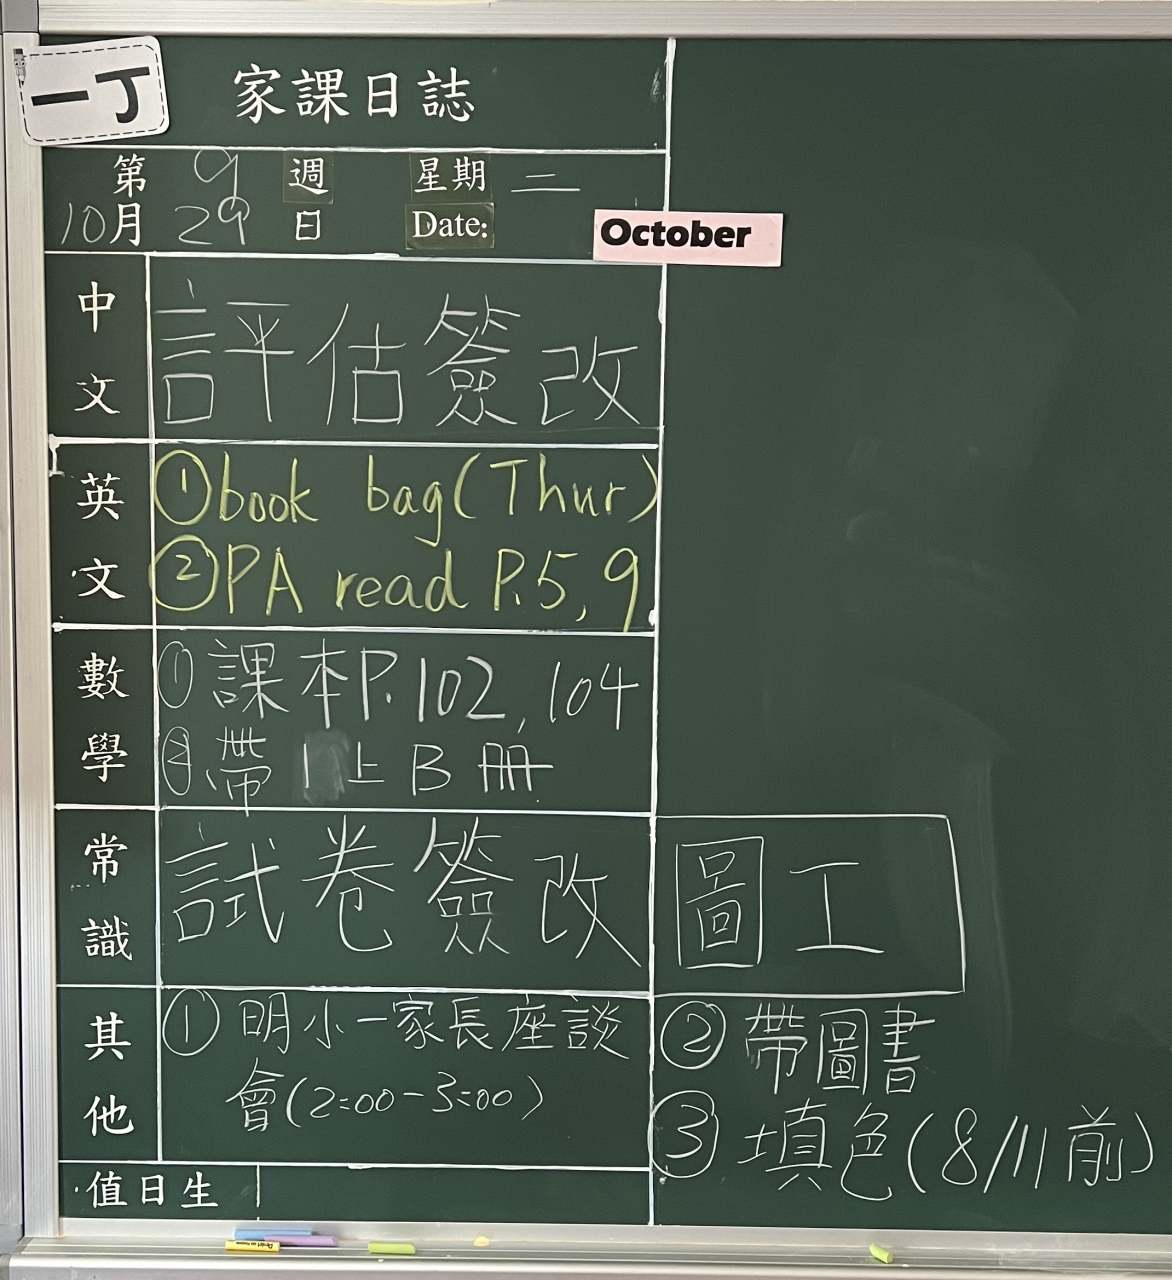 一丁
家課日誌
第 9 週 星期 二
10月 29 日 Date: October
中文
評估簽改
英文
①book bag(Thur)
②PA read P.5, 9
數學
①課本P.102, 104
②帶 上B冊
常識
試卷簽改
圖工
其他
①明小一家長座談
會(2:00-3:00)
②帶圖書
③填色(8/11前)
值日生